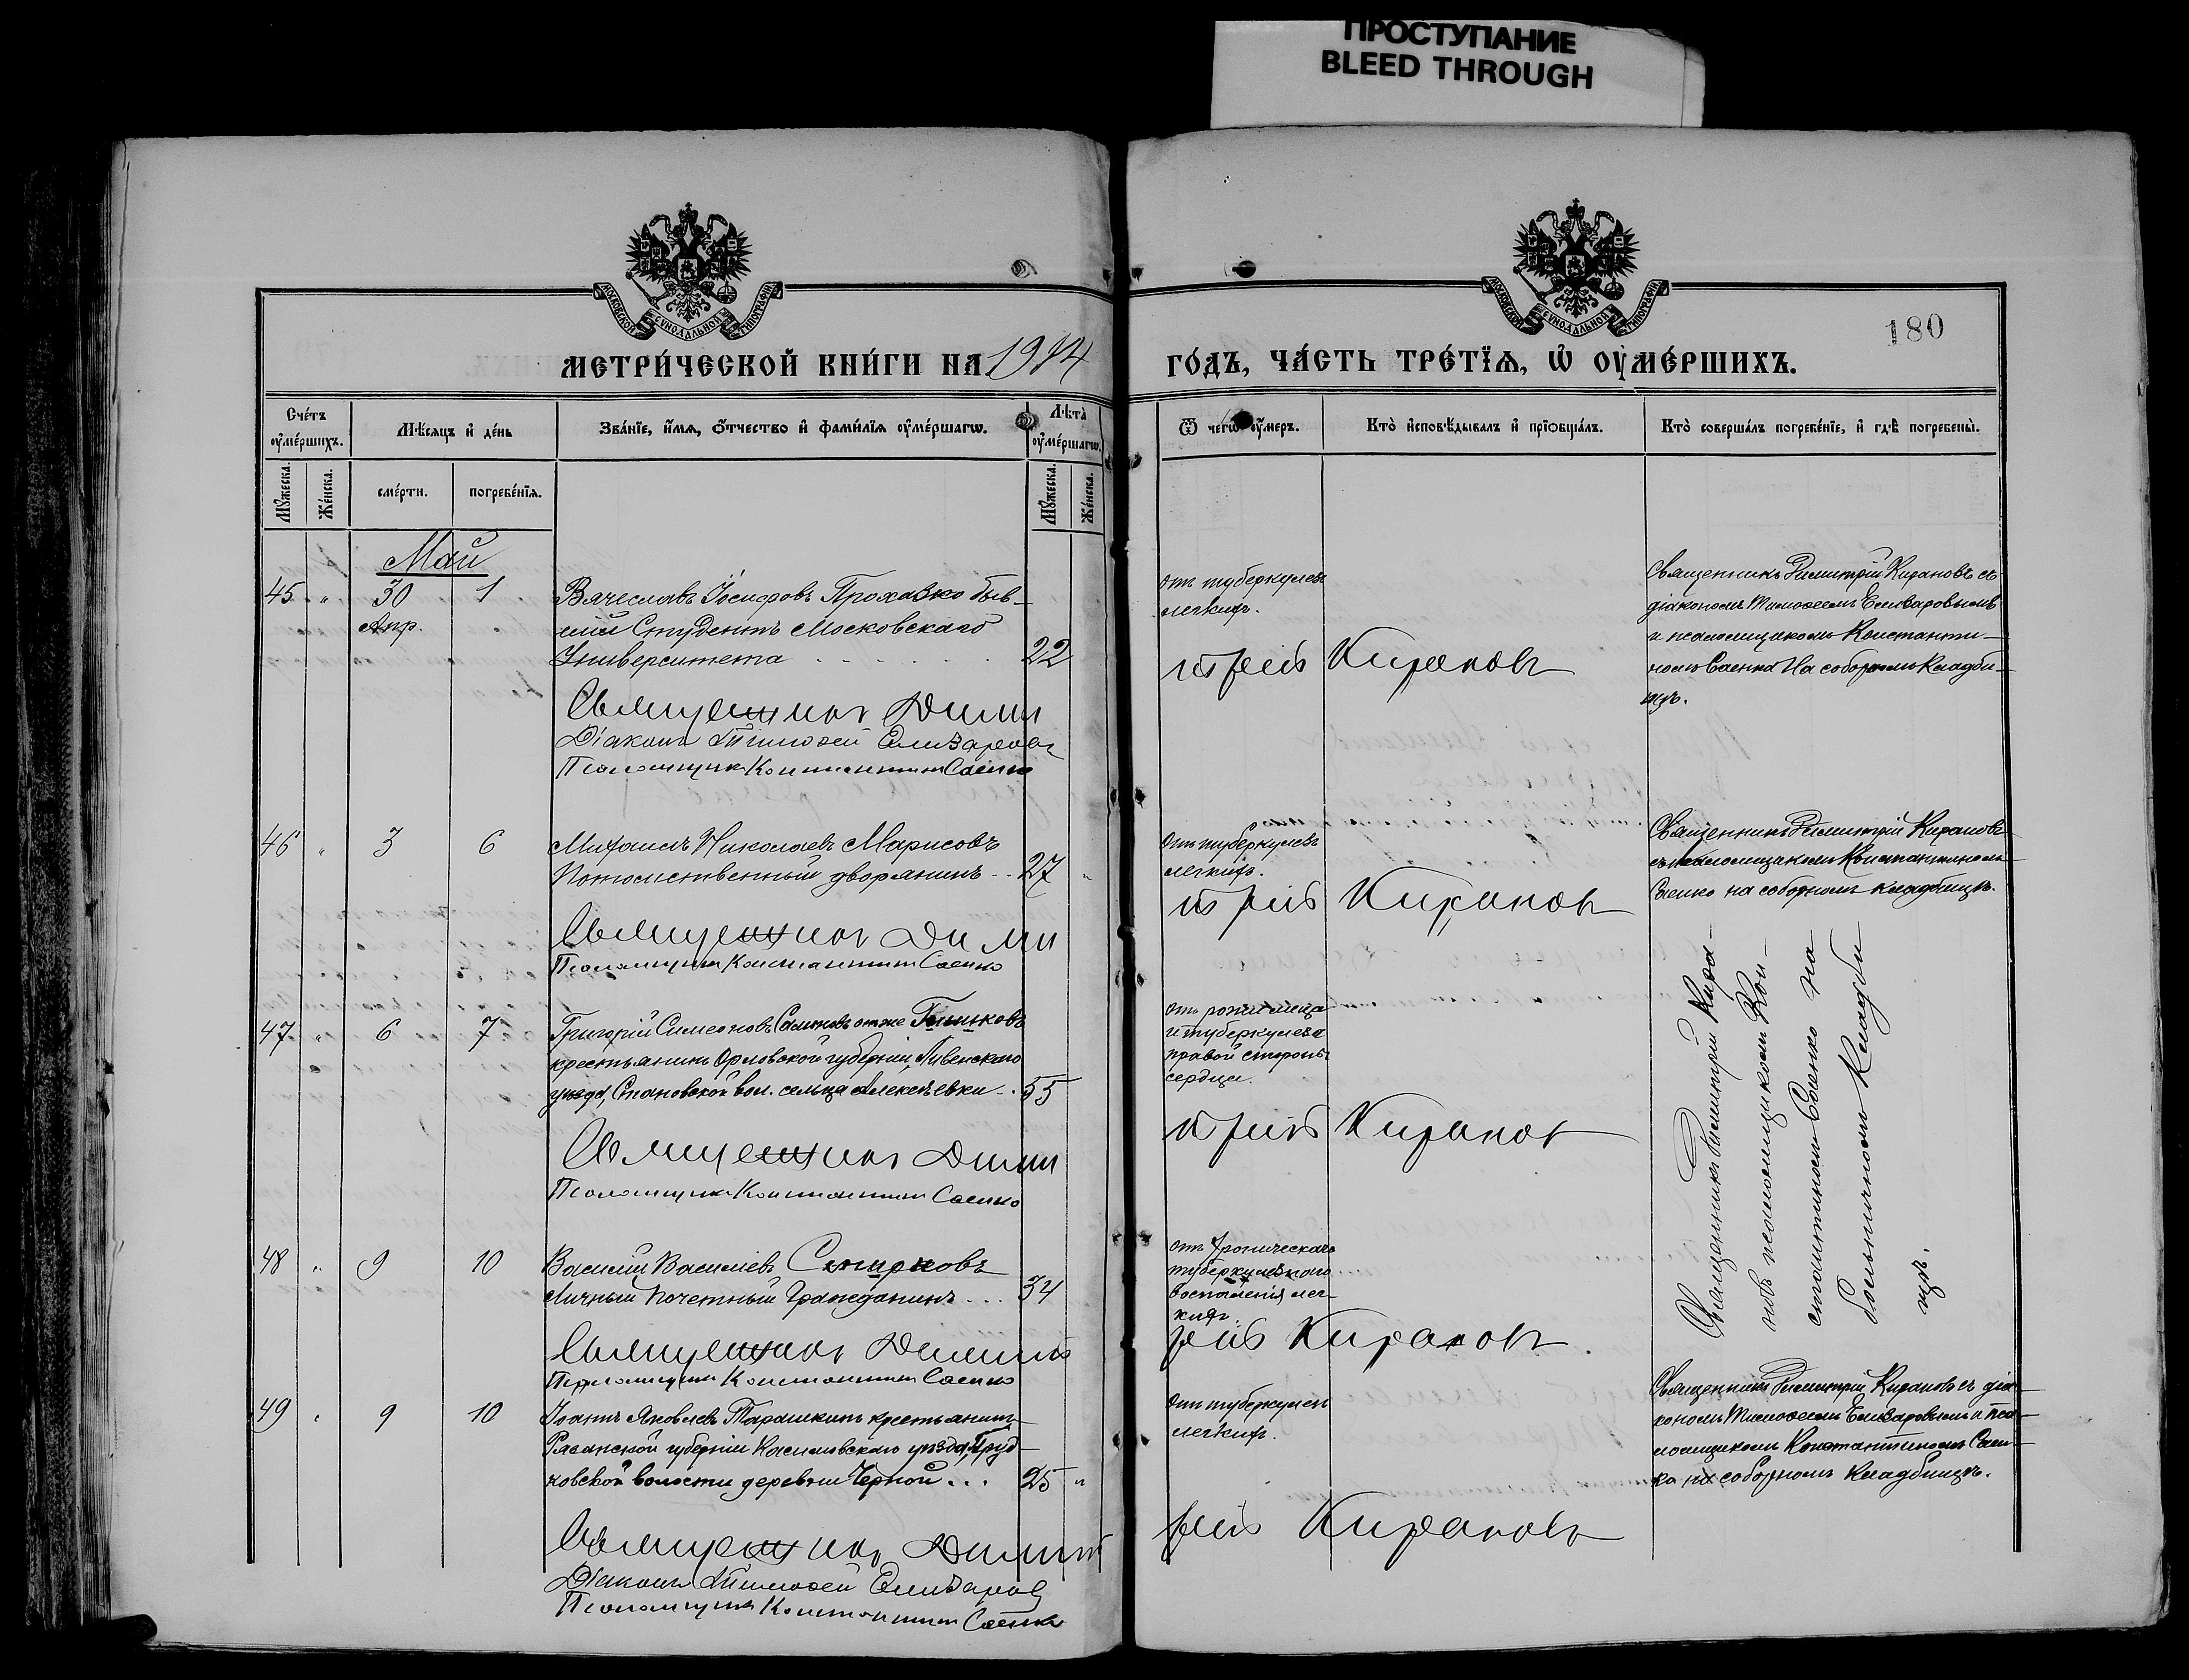 ПРОСТУПАНИЕ
BLEED THROUGH
МОСКОВСКОЙ СѴНОДАЛЬНОЙ ТИПОГРАФІИ
МОСКОВСКОЙ СѴНОДАЛЬНОЙ ТИПОГРАФІИ
180
МЕТРИ́ЧЕСКОЙ КНИ́ГИ НА 1914
ГО́ДЪ, ЧА́СТЬ ТРЕ́ТІѦ, Ѡ ОУМЕ́РШИХЪ.
Сче́тъ оуме́ршихъ.
Мѣ́сяцъ и де́нь
Зва́нїе, и́мѧ, о́тчество и фами́лїѧ оуме́ршагѡ.
Лѣта̀ оуме́ршагѡ.
Ѿ чегѡ̀ оу́меръ.
Кто̀ исповѣ́дывалъ и прїѡбща́лъ.
Кто̀ соверша́лъ погребе́нїе, и гдѣ̀ погребены̀.
Му́жеска.
Же́нска.
сме́рти.
погребе́нїѧ.
Му́жеска.
Же́нска.
Май
45 " 30 1
Апр.
Вячеславъ Іосифовъ Прохазко быв-
шій Студентъ Московскаго
Университета 22
Священникъ Дими
Діаконъ Тимофей Елизаровъ
Псаломщикъ Константинъ Саенко
отъ туберкулеза
легкихъ.
іерей Кирановъ
Священникъ Димитрій Кирановъ съ
діакономъ Тимофеемъ Елизаровымъ
и псаломщикомъ Константи-
номъ Саенко На соборномъ Кладби-
щѣ.
46 " 3 6
Михаилъ Николаевъ Марисовъ
Потомственный дворянинъ 27
Священникъ Дими
Псаломщикъ Константинъ Саенко
Отъ туберкулеза
легкихъ.
іерей Кирановъ
Священникъ Димитрій Кирановъ
съ псаломщикомъ Константиномъ
Саенко на соборномъ кладбищѣ.
47 " 6 7
Григорій Симеоновъ онъ же
крестьянинъ Орловской губерніи, Ливенскаго
уѣзда, Становской вол. сельца Алексѣевки 55
Священникъ Дими
Псаломщикъ Константинъ Саенко
отъ
и туберкулеза
правой стороны
сердца.
іерей Кирановъ
Священникъ Димитрій Кира-
новъ псаломщикомъ Кон-
стантиномъ Саенко на
больничномъ Кладби
щѣ.
48 " 9 10
Василій Василіевъ Смирновъ
Личный Почетный Гражданинъ 34
Священникъ Димит
Псаломщикъ Константинъ Саенко
отъ хроническаго
туберкулезнаго
воспаленія лег-
кихъ.
рей Кирановъ
49 " 9 10
Іоаннъ Яковлевъ Тарашкинъ крестьянинъ
Рязанской губерніи Касимовскаго уѣзда,
ковской волости деревни Черной 25 "
Священникъ Димит
Діаконъ Тимофей Елизаров
Псаломщикъ Константинъ Саенко
отъ туберкулеза
легкихъ.
рей Кирановъ
Священникъ Димитрій Кирановъ съ діа-
кономъ Тимофеемъ Елизаровымъ и пса-
ломщикомъ Константиномъ Саен-
ко на соборномъ кладбищѣ.